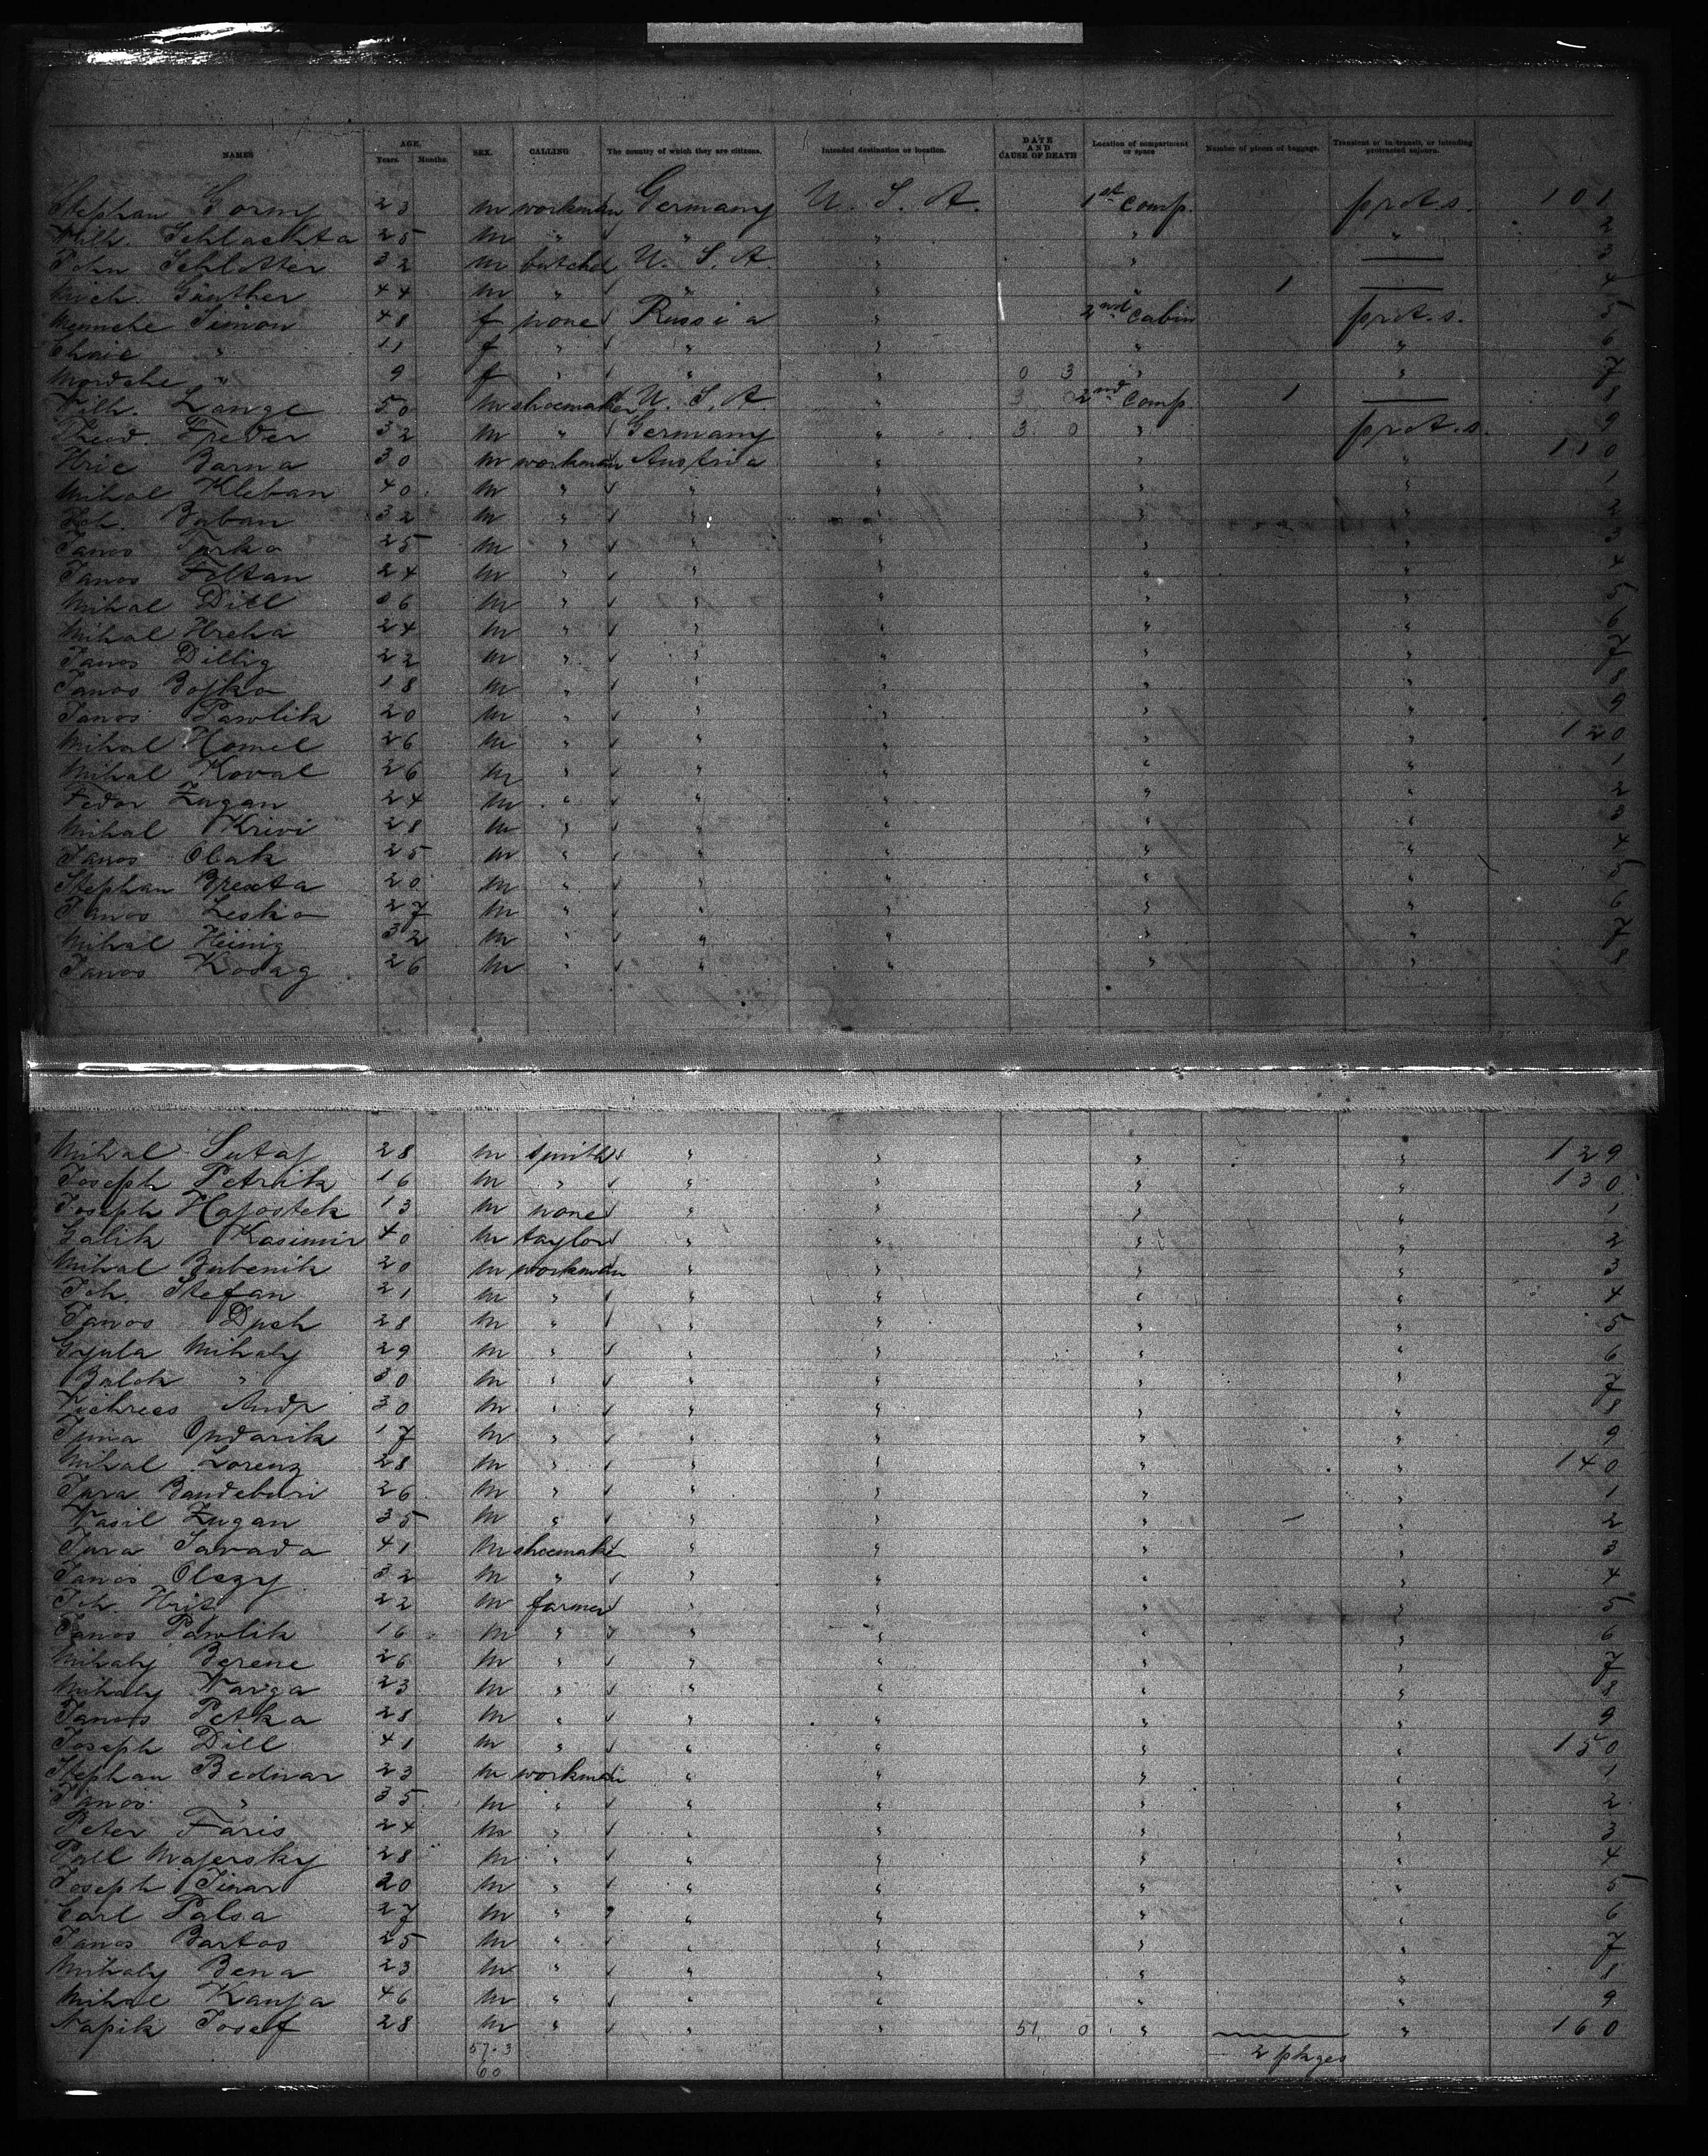 NAMES AGE. Years. Months. SEX. CALLING The country of which they are citizens. Intended destination or location. DATE AND CAUSE OF DEATH Location of compartment or space Number of pieces of baggage. Transient or in transit, or intending protracted sojourn.
Stephan Gorny 23 m workman Germany U. S. A. 1st comp. prot. s. 101
Wilh. Schlachta 25 m " " " " " 2
John Schlotter 32 m butcher U. S. A. " " — 3
Mich. Günther 44 m " " " " 1 — 4
Simon 48 f none Russia " 2nd cabin prot. s. 5
Chaie " 11 f " " " " " 6
Mordche " 9 f " " " 0 3 " " 7
Wilh. Lange 50 m shoemaker U. S. A. " 3 0 2nd comp. 1 — 8
Theod. 32 m " Germany " 3 0 " prot. s. 9
Hric Barna 30 m workman Austria " " " 110
Mihal Kleban 40 m " " " " " 1
Joh. Baban 32 m " " " " " 2
Janos Turko 25 m " " " " " 3
Janos Filtan 24 m " " " " " 4
Mihal Dill 36 m " " " " " 5
Mihal Hreha 24 m " " " " " 6
Janos Dillig 22 m " " " " " 7
Janos Bojko 18 m " " " " " 8
Janos Pawlik 20 m " " " " " 9
Mihal Homel 26 m " " " " " 120
Mihal Koval 26 m " " " " " 1
Fedor Zugan 24 m " " " " " 2
Mihal Krivi 28 m " " " " " 3
Janos Olak 25 m " " " " " 4
Stephan Brexta 20 m " " " " " 5
Janos Lesko 27 m " " " " " 6
Mihal Heinig 32 m " " " " " 7
Janos Kosag 26 m " " " " " 8
Mihal Sutaj 28 m smith " " " " 129
Joseph Petrik 16 m " " " " " 130
Joseph Hapostek 13 m none " " " " 1
Galik Kasimir 40 m taylor " " " " 2
Mihal Bubenik 20 m workman " " " " 3
Joh. Stefan 21 m " " " " " 4
Janos Duch 28 m " " " " " 5
Gyula Mihaly 29 m " " " " " 6
Baloh " 30 m " " " " " 7
Andr 30 m " " " " " 8
Ondarik 17 m " " " " " 9
Mihal Lorenz 28 m " " " " " 140
Jura Bandeburi 26 m " " " " " 1
Wasil Zugan 35 m " " " " — " 2
Jura Savada 41 m shoemaker " " " " 3
Janos Olszy 32 m " " " " " 4
Joh. Hris 22 m farmer " " " " 5
Janos Pawlik 16 m " " " " " 6
Mihaly Berene 26 m " " " " " 7
Mihaly Wariga 23 m " " " " " 8
Janos Petka 28 m " " " " " 9
Joseph Dill 41 m " " " " " 150
Stephan Bednar 23 m workman " " " " 1
Janos " 35 m " " " " " 2
Peter Faris 24 m " " " " " 3
Pall Majersky 28 m " " " " " 4
Joseph 20 m " " " " " 5
Carl Palsa 27 m " " " " " 6
Janos Bartos 25 m " " " " " 7
Mihaly Bena 23 m " " " " " 8
Mihal Kanja 46 m " " " " " 9
Napik Josef 28 m " " " 51. 0 " " 160
57-3 2 pkges
60